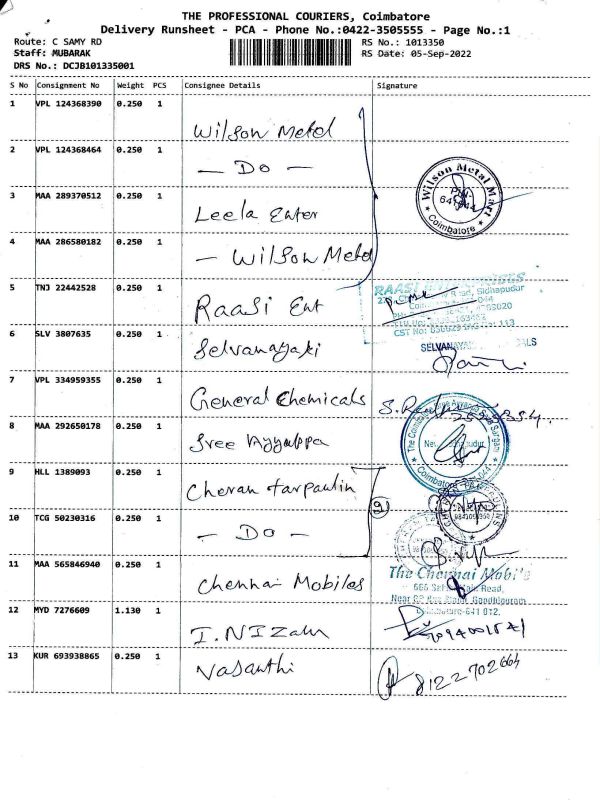 THE PROFESSIONAL COURIERS, Coimbatore
Delivery Runsheet - PCA - Phone No.:0422-3505555 - Page No.:1
Route: C SAMY RD
RS No.: 1013350
Staff: MUBARAK
RS Date: 05-Sep-2022
DRS No.: DCJB101335001
S No Consignment No Weight PCS Consignee Details Signature
1 VPL 124368390 0.250 1
Wilson Metal
2 VPL 124368464 0.250 1
— Do —
Wilson Metal Mart
Coimbatore
3 MAA 289370512 0.250 1
Leela Enter
4 MAA 286580182 0.250 1
— Wilson Metal
5 TNJ 22442528 0.250 1
Raasi Ent
RAASI
Sidhapudur
6 SLV 3807635 0.250 1
Selvanayaki
7 VPL 334959355 0.250 1
General Chemicals
8 MAA 292650178 0.250 1
Sree Ayyappa
Coimbatore
9 HLL 1389093 0.250 1
Cheran tarpaulin
(9)
10 TCG 50230316 0.250 1
— Do —
11 MAA 565846940 0.250 1
Chennai Mobiles
The Chennai Mobiles
Road,
Gandhipuram
Coimbatore-641 012.
12 MYD 7276609 1.130 1
I. NIZam
13 KUR 693938865 0.250 1
Vasanthi
8122702664